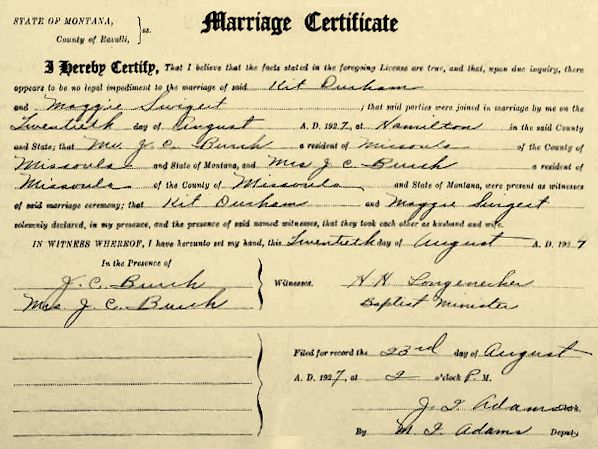 STATE OF MONTANA,
County of Ravalli, } ss.
Marriage Certificate
I Hereby Certify, That I believe that the facts stated in the foregoing License are true, and that, upon due inquiry, there
appears to be no legal impediment to the marriage of said Kit Durham
and Maggie Swigert ; that said parties were joined in marriage by me on the
Twentieth day of August A. D. 1927, at Hamilton in the said County
and State; that Mr. J. C. Burch a resident of Missoula of the County of
Missoula and State of Montana, and Mrs J C Burch a resident of
Missoula of the County of Missoula and State of Montana, were present as witnesses
of said marriage ceremony; that Kit Durham and Maggie Swigert
solemnly declared, in my presence, and the presence of said named witnesses, that they took each other as husband and wife.
IN WITNESS WHEREOF, I have hereunto set my hand, this Twentieth day of August A. D. 1927
In the Presence of
J. C. Burch
Mrs J. C. Burch
Witnesses.
H H Longenecker
Baptist Minister
Filed for record the 23rd day of August
A. D. 1927, at 2 o'clock P. M.
Adams Clerk.
By Adams Deputy